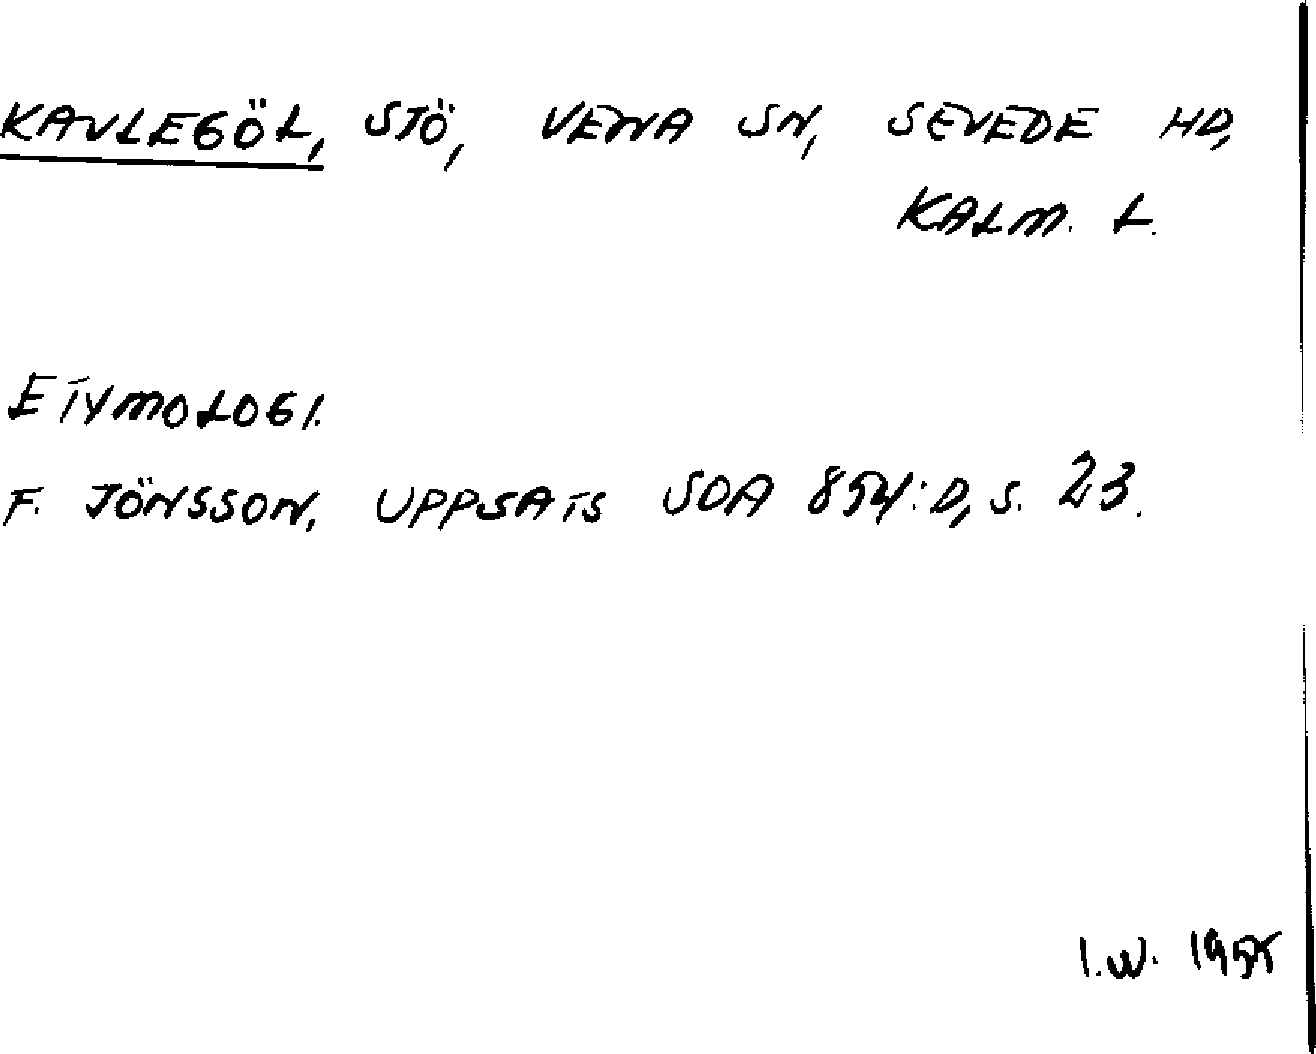 KAVLEGÖL, SJÖ, VENA SN, SEVEDE HD,
KALM. L.
ETYMOLOGI.
F. JÖNSSON, UPPSATS SOA 854:D, S. 23.
I.W. 1955